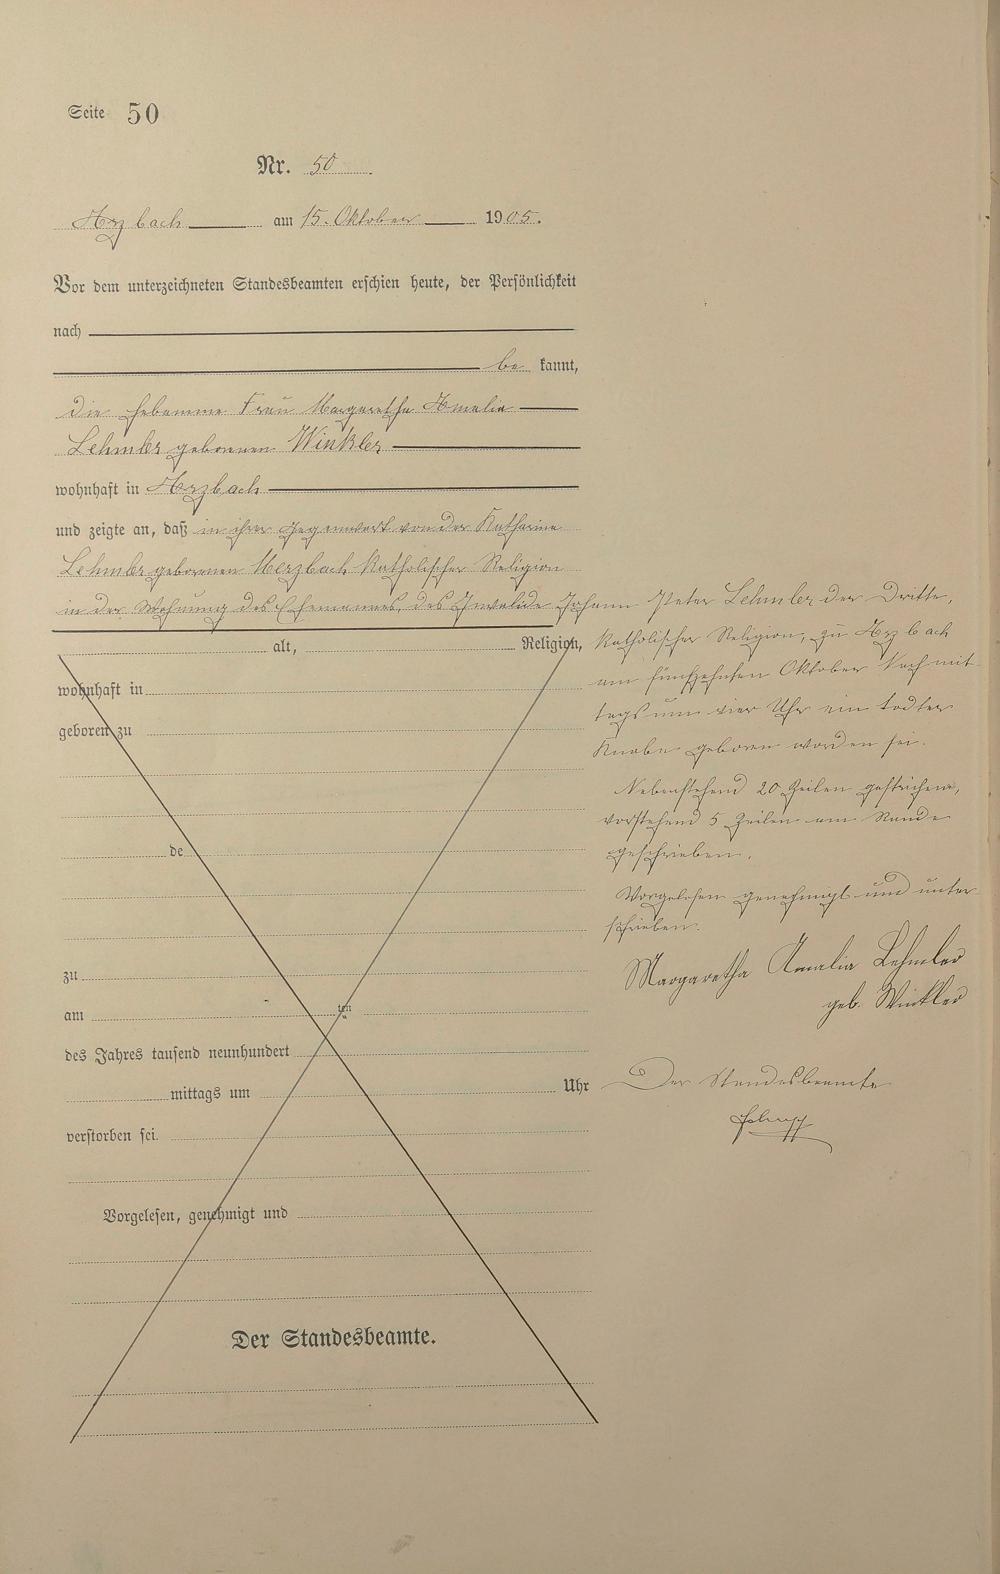 Seite 50
Nr. 50
Arzbach am 15. Oktober 1905.
Vor dem unterzeichneten Standesbeamten erschien heute, der Persönlichkeit
nach
be kannt,
die Hebamme Frau Margaretha Amalia
Lehmler geborenen Winkler
wohnhaft in Arzbach
und zeigte an, daß in ihrer Gegenwart von der Katharina
Lehmler geborenen Merzbach Katholischer Religion
in der Wohnung des Ehemannes, des Invalide Johann Peter Lehmler der Dritte,
alt, Religion,
Katholischer Religion, zu Arzbach
am fünfzehnten Oktober Nachmit-
tags um vier Uhr ein todter
Knabe geboren worden sei.
Nebenstehend 20 Zeilen gestrichen,
vorstehend 5 Zeilen am Rande
geschrieben.
Vorgelesen genehmigt und unter-
schrieben.
Margaretha Amalia Lehmler
geb. Winkler
Der Standesbeamte
wohnhaft in
geboren zu
de
zu
am ten
des Jahres tausend neunhundert
mittags um Uhr
verstorben sei.
Vorgelesen, genehmigt und
Der Standesbeamte.